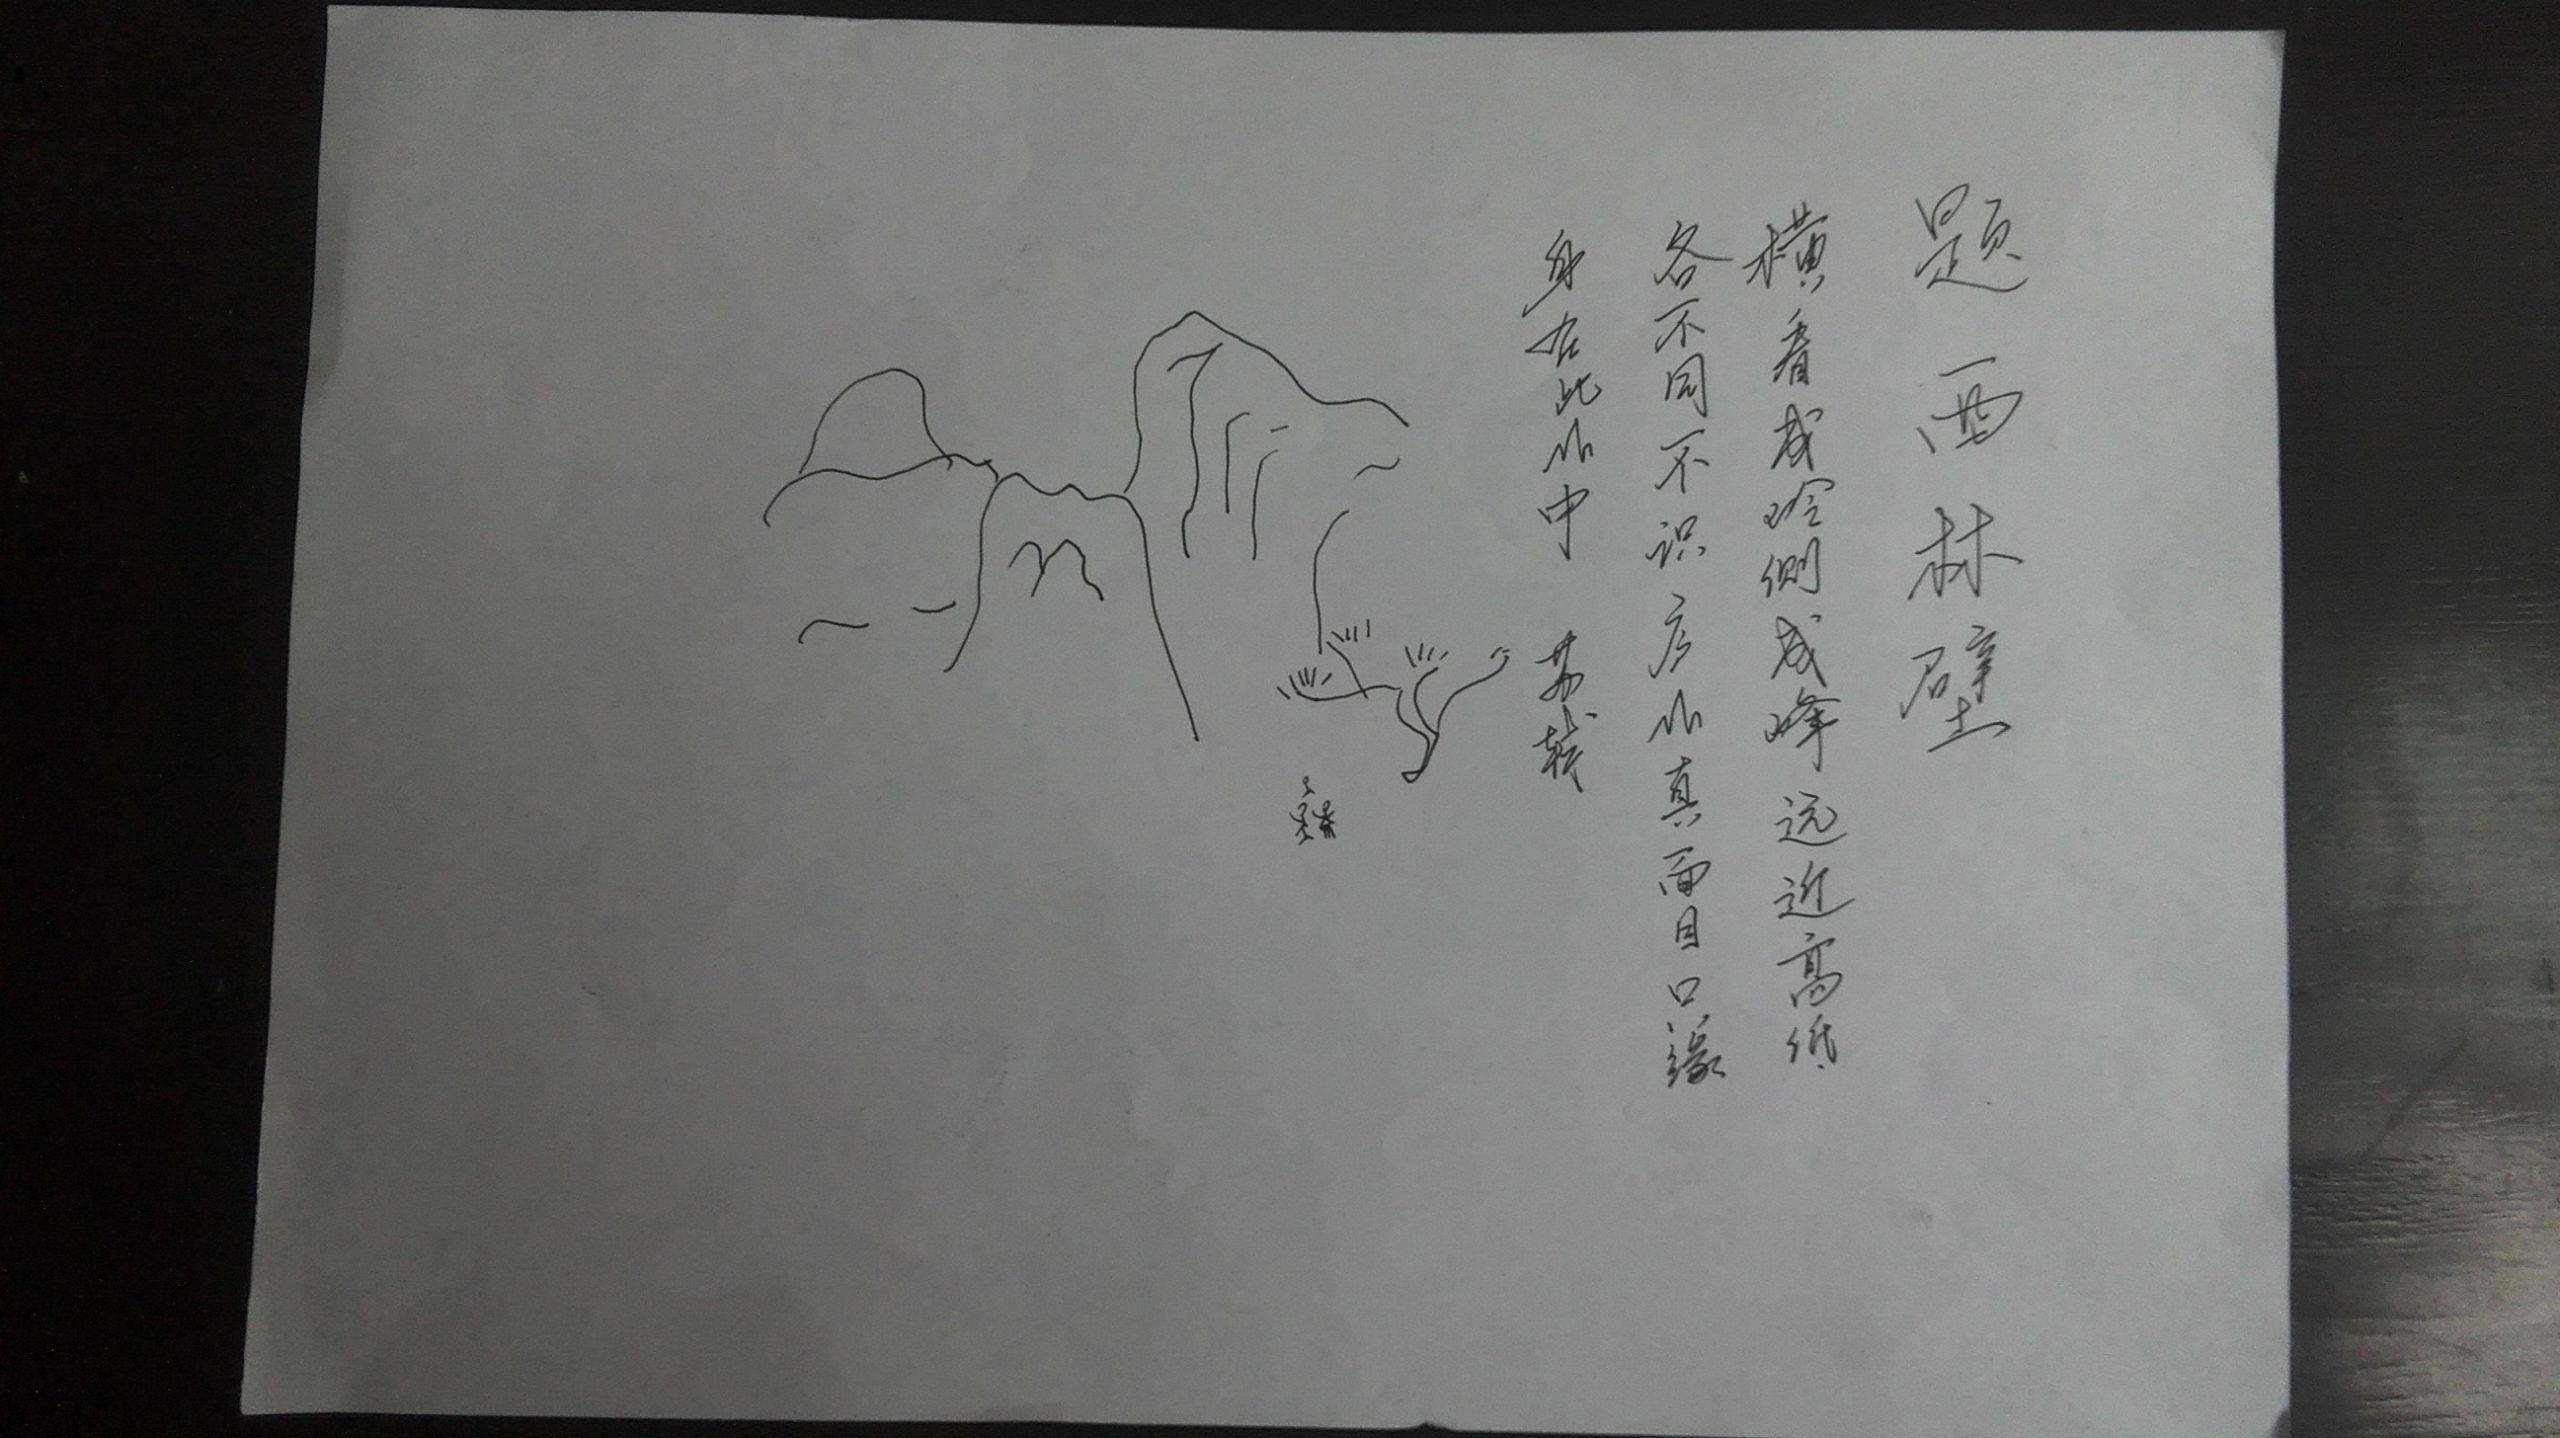 题西林壁
横看成岭侧成峰远近高低
各不同不识庐山真面目口缘
身在此山中 苏轼